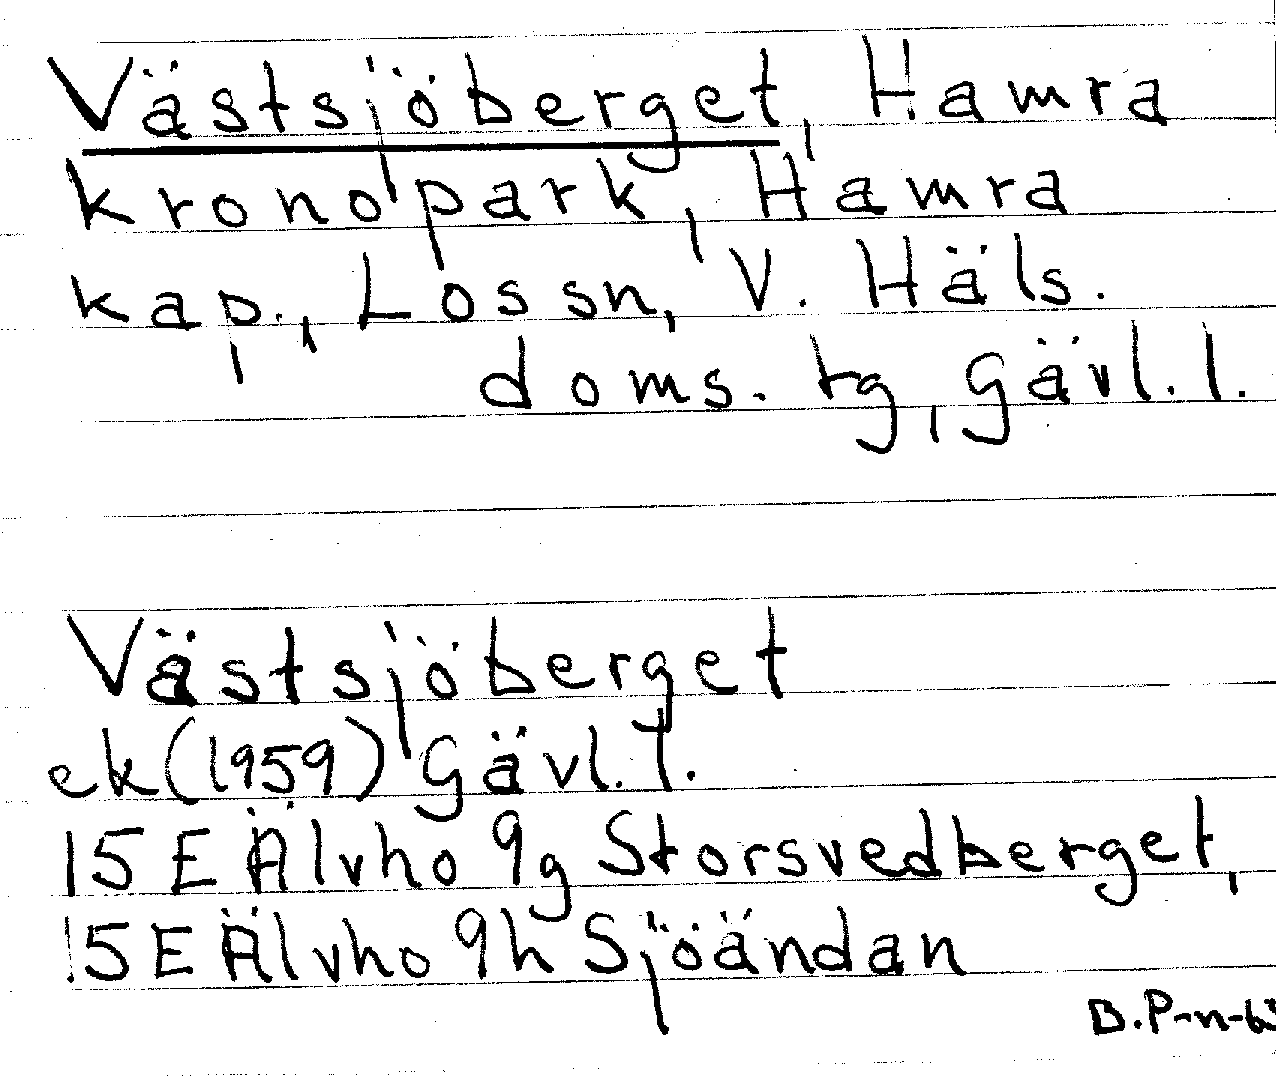 Västsjöberget, Hamra
kronopark, Hamra
kap., Lossn, V. Häls.
doms. tg, Gävl. l.
Västsjöberget
ek (1959) Gävl. l.
15 E Älvho 9g Storsvedberget,
15 E Älvho 9h Sjöändan